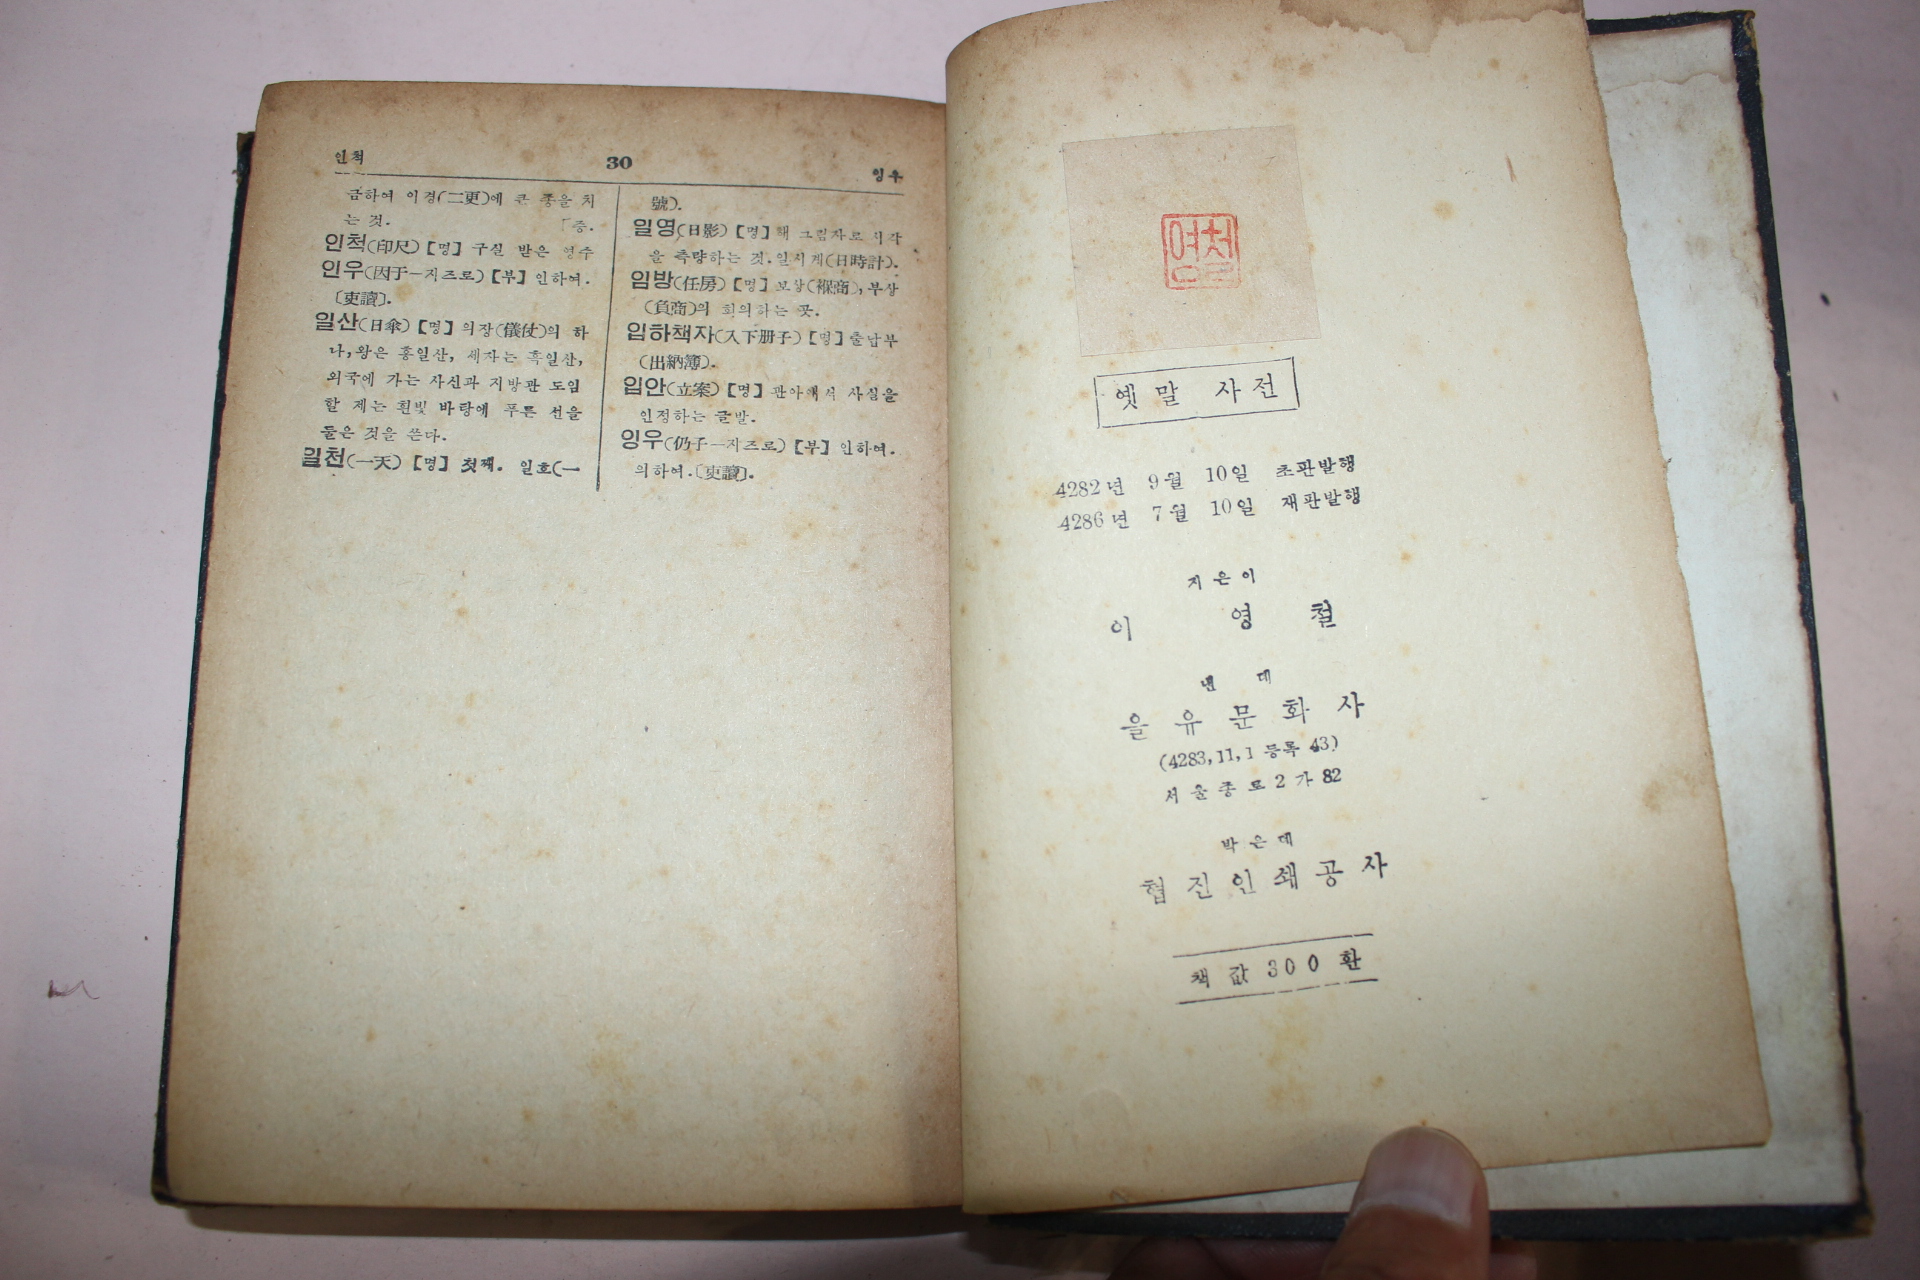 인척 30 잉우
금하여 이경(二更)에 큰 종을 치
는 것. 「증.
인척(印尺)【명】구실 받은 영수
인우(因于—지즈로)【부】인하여.
〔吏讀〕.
일산(日傘)【명】의장(儀仗)의 하
나, 왕은 홍일산, 세자는 흑일산,
외국에 가는 사신과 지방관 도임
할 제는 흰빛 바탕에 푸른 선을
둘은 것을 쓴다.
일천(一天)【명】첫째. 일호(一
號).
일영(日影)【명】해 그림자로 시각
을 측량하는 것. 일시계(日時計).
임방(任房)【명】보상(褓商), 부상
(負商)의 회의하는 곳.
입하책자(入下册子)【명】출납부
(出納簿).
입안(立案)【명】관아에서 사실을
인정하는 글발.
잉우(仍于—지즈로)【부】인하여.
의하여.〔吏讀〕.
영철
옛말 사전
4282년 9월 10일 초판발행
4286년 7월 10일 재판발행
지은이
이 영 철
낸 데
을유문화사
(4283, 11, 1 등록 43)
서울종로2가82
박은데
협진인쇄공사
책값300환